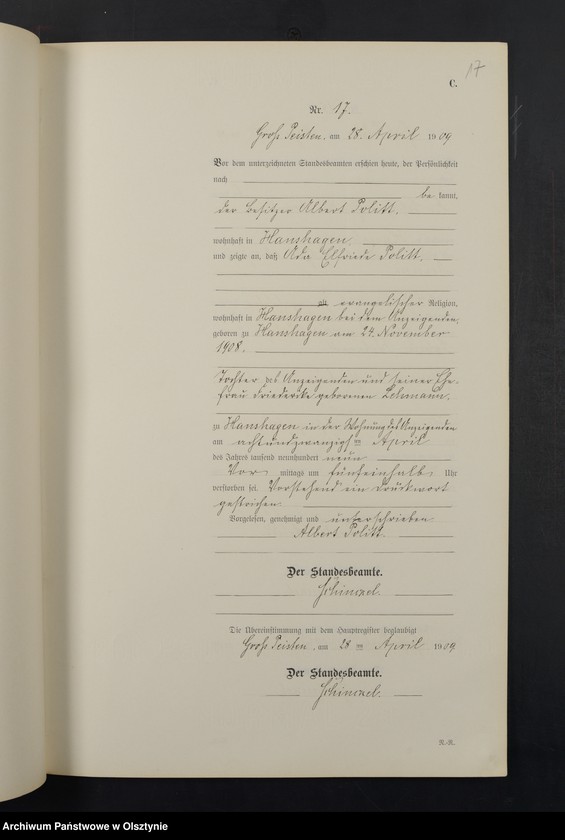 17
C.
Nr. 17.
Groß Peisten, am 28. April 1909
Vor dem unterzeichneten Standesbeamten erschien heute, der Persönlichkeit
nach
be kannt,
der Besitzer Albert Politt,
wohnhaft in Hanshagen,
und zeigte an, daß Ada Elfriede Politt,
alt, evangelischer Religion,
wohnhaft in Hanshagen bei dem Anzeigenden,
geboren zu Hanshagen am 24. November
1908.
Tochter des Anzeigenden und seiner Ehe-
frau Friederike geborenen Lehmann,
zu Hanshagen in der Wohnung des Anzeigenden
am achtundzwanzigsten April
des Jahres tausend neunhundert neun
Vor mittags um fünfeinhalb Uhr
verstorben sei. Vorstehend ein Druckwort
gestrichen.
Vorgelesen, genehmigt und unterschrieben
Albert Politt.
Der Standesbeamte.
Die Übereinstimmung mit dem Hauptregister beglaubigt
Groß Peisten, am 28 ten April 1909
Der Standesbeamte.
R.-R.
Archiwum Państwowe w Olsztynie